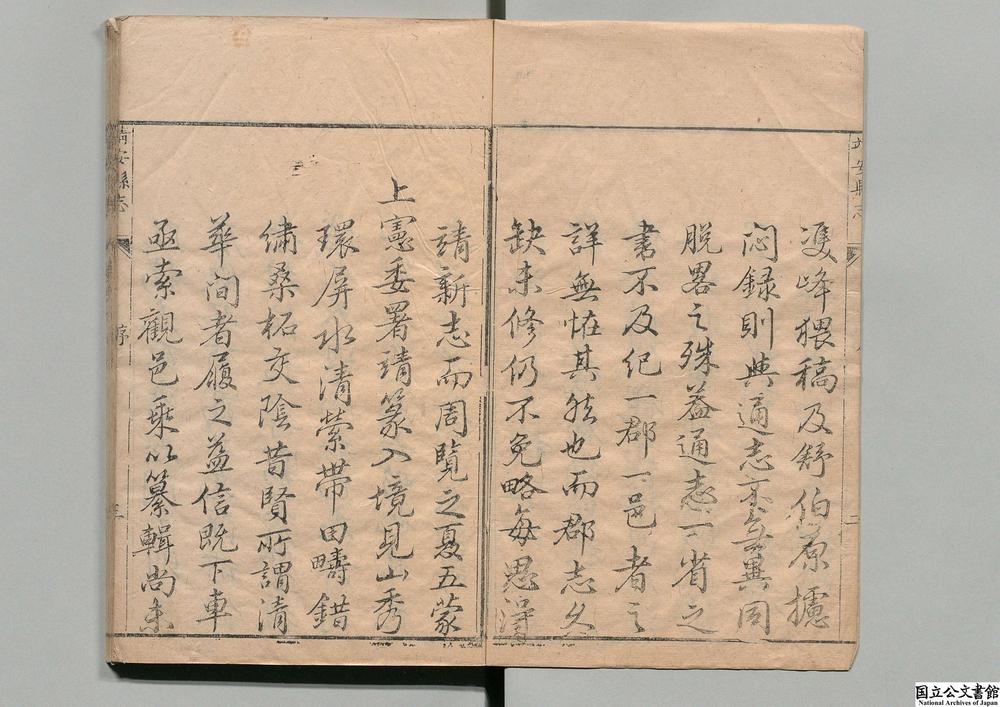 雙峰猥稿及舒伯原攄
悶録則與通志亦無異同
脫畧之殊蓋通志一省之
書不及紀一郡一邑者之
詳無恠其然也而郡志久
缺未修仍不免略每思得
靖新志而周覽之夏五蒙
上憲委署靖篆入境見山秀
環屏水清縈帶田疇錯
繡桑柘交陰昔賢所謂清
華間者履之益信既下車
亟索觀邑乘以纂輯尚未
靖安縣志
序
三
靖安縣志
二
国立公文書館
National Archives of Japan